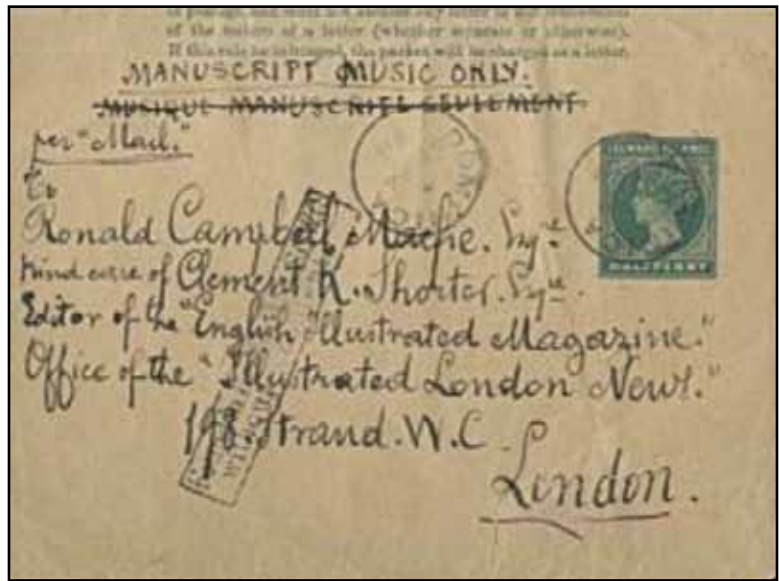 of the nature of a letter (whether separate or otherwise).
If this rule be infringed, the packet will be charged as a letter.
MANUSCRIPT MUSIC ONLY.
MUSIQUE MANUSCRITE SEULEMENT
per "Mail."
To
Ronald Campbell Macfie. Esqre.
Kind care of Clement K. Shorter. Esqre.
Editor of the "English Illustrated Magazine."
Office of the "Illustrated London News."
198. Strand. W.C.
London.
HALFPENNY